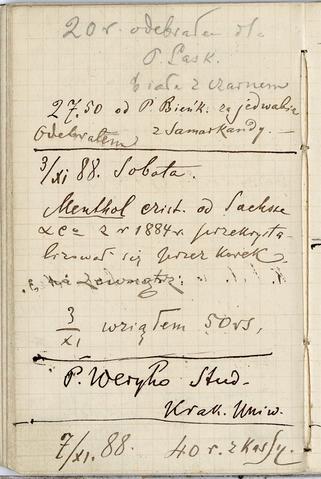 20 r. odebrałem dla
P. Lask.
biała z czarnem
27.50 od P. Bieńk. za jedwabie
Odebrałem z Samarkandy. —
3/XI 88. Sobota.
Menthol crist. od Sachsse
& Co z r 1884 r. przekrysta-
lizował się przez korek
na zewnątrz.
3/XI wziąłem 50 rs.
P. Weryho Stud.
Krak. Uniw.
7/XI. 88. 40 r. z Kassy.